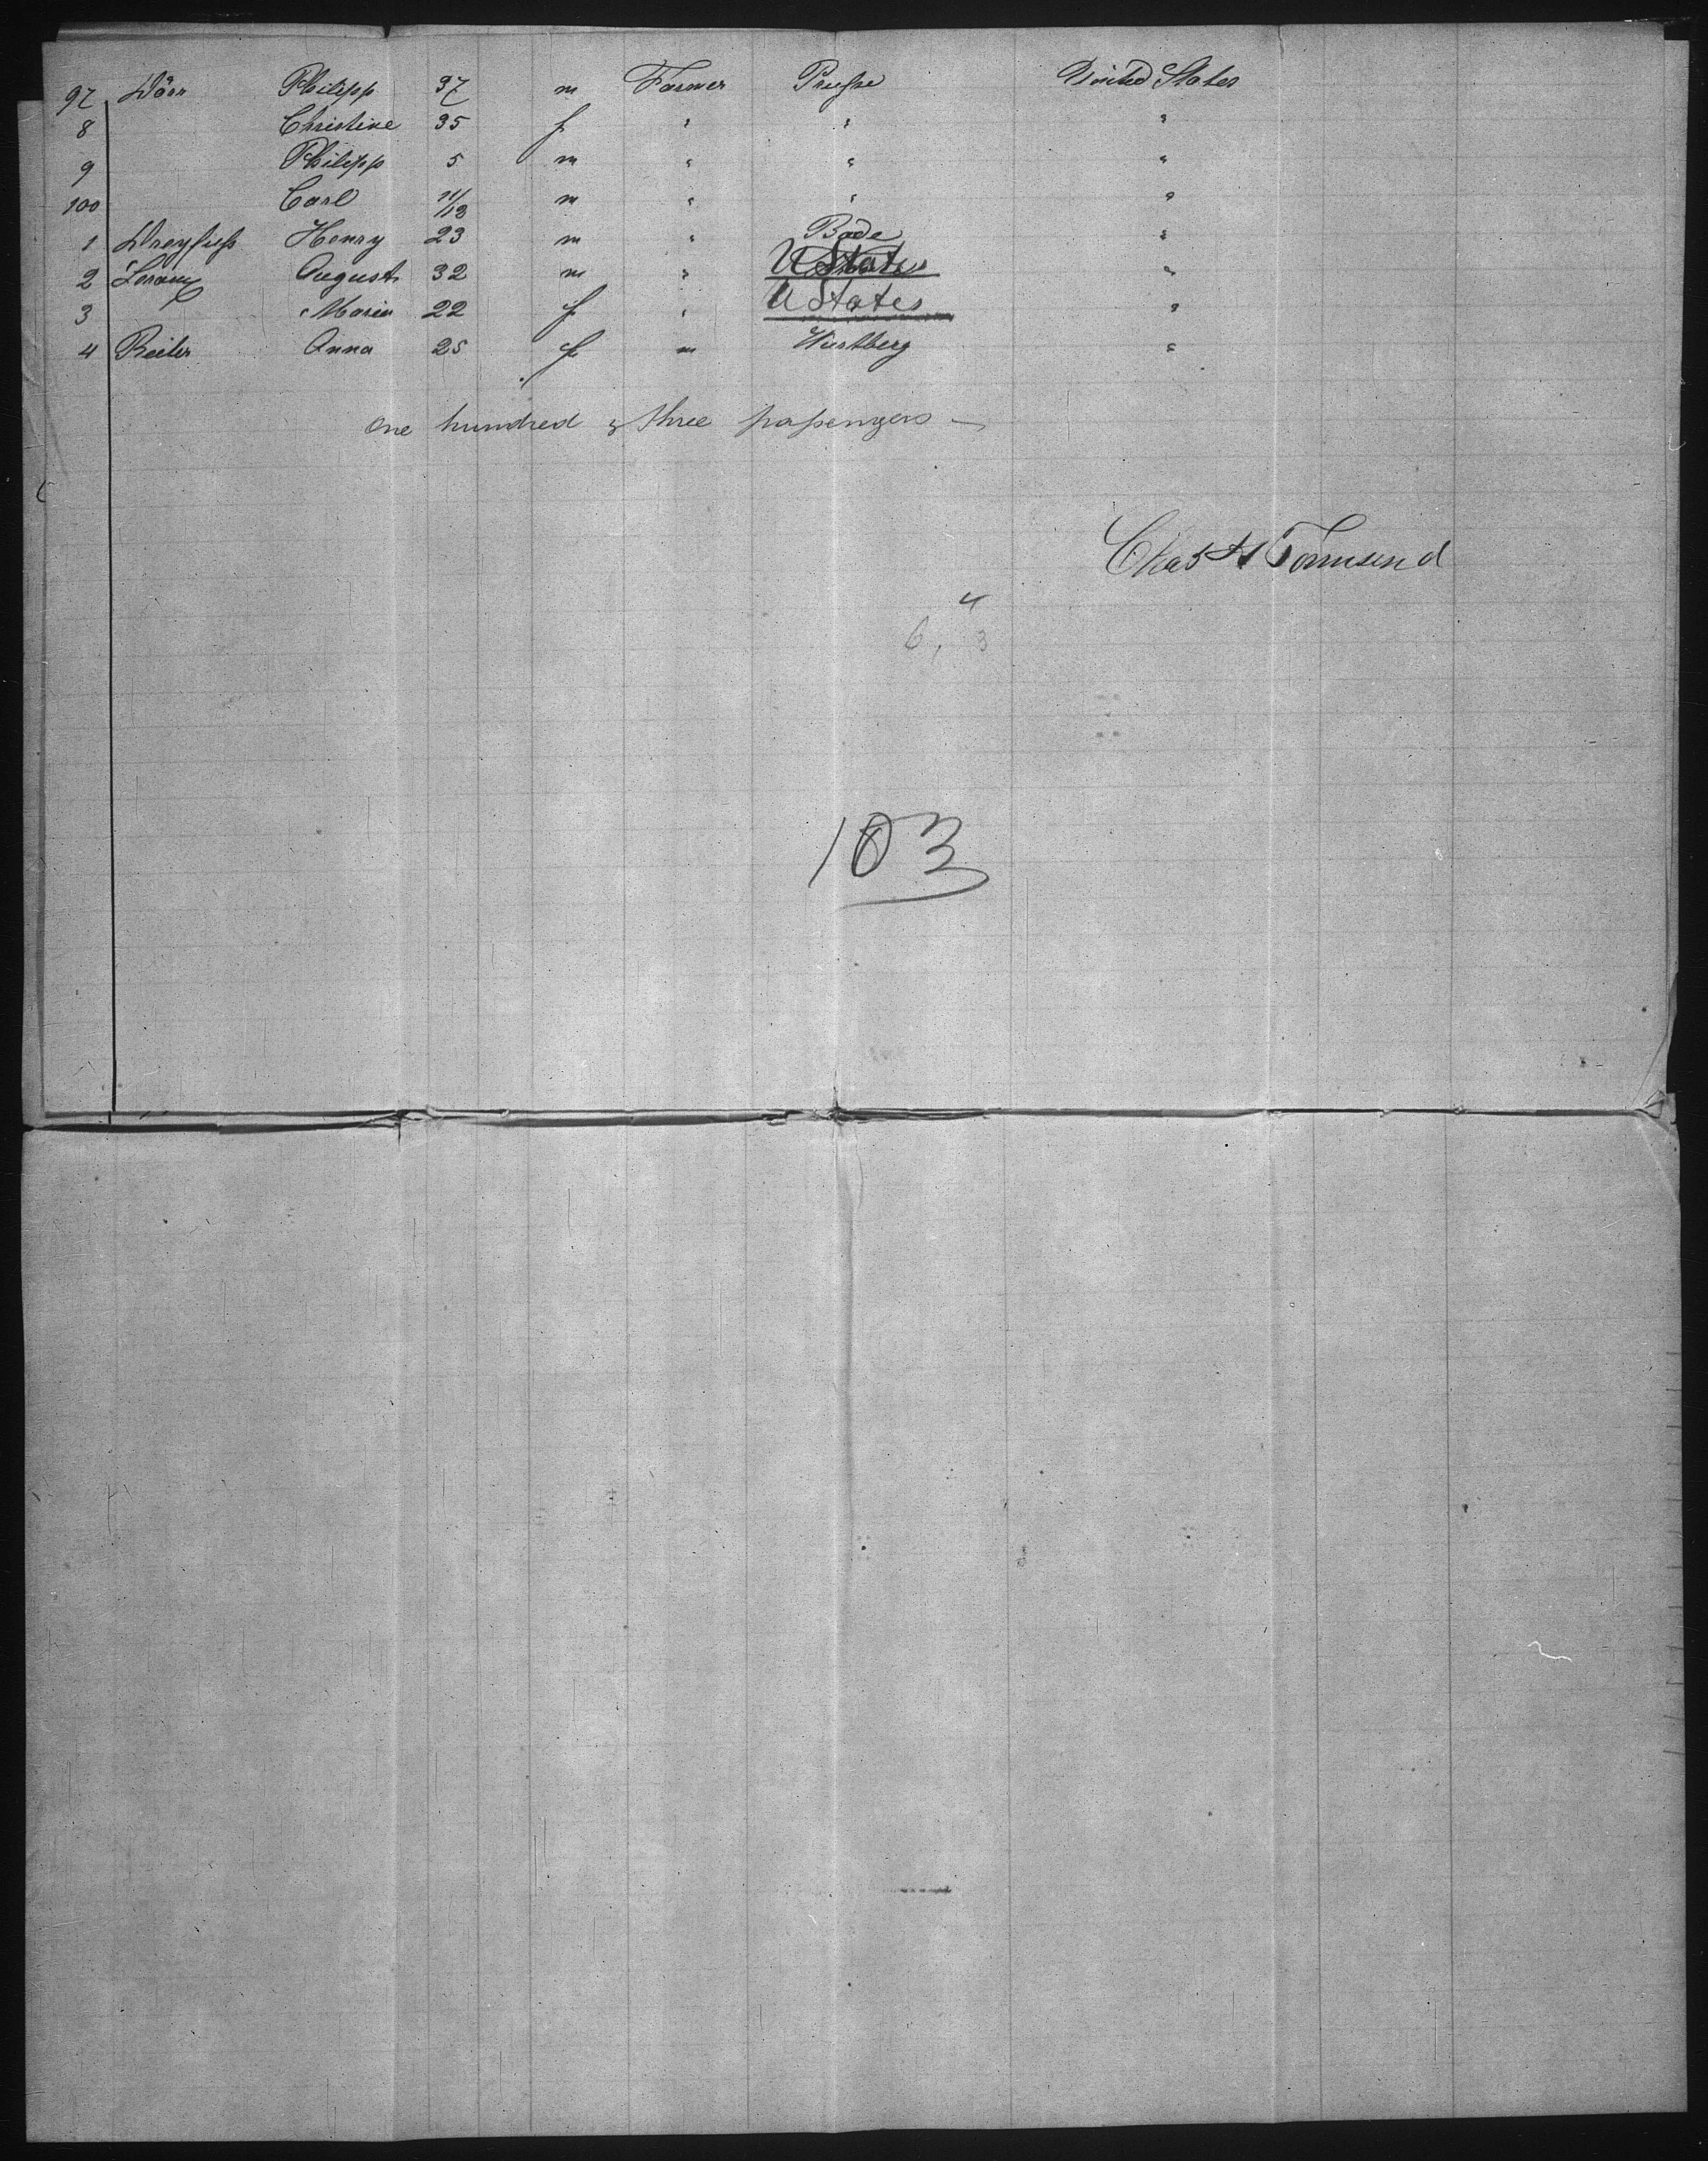 97 Dörr Philipp 37 m Farmer Preuße United States
8 Christine 35 f " " "
9 Philipp 5 m " " "
100 Carl 11/12 m " " "
1 Dreyfuß Henry 23 m " Bade "
2 August 32 m " U States "
3 Marie 22 f " U States "
4 Reiter Anna 25 f " Wurtberg "
One hundred & three passengers —
Chas H Townsend
4
6, 3
103